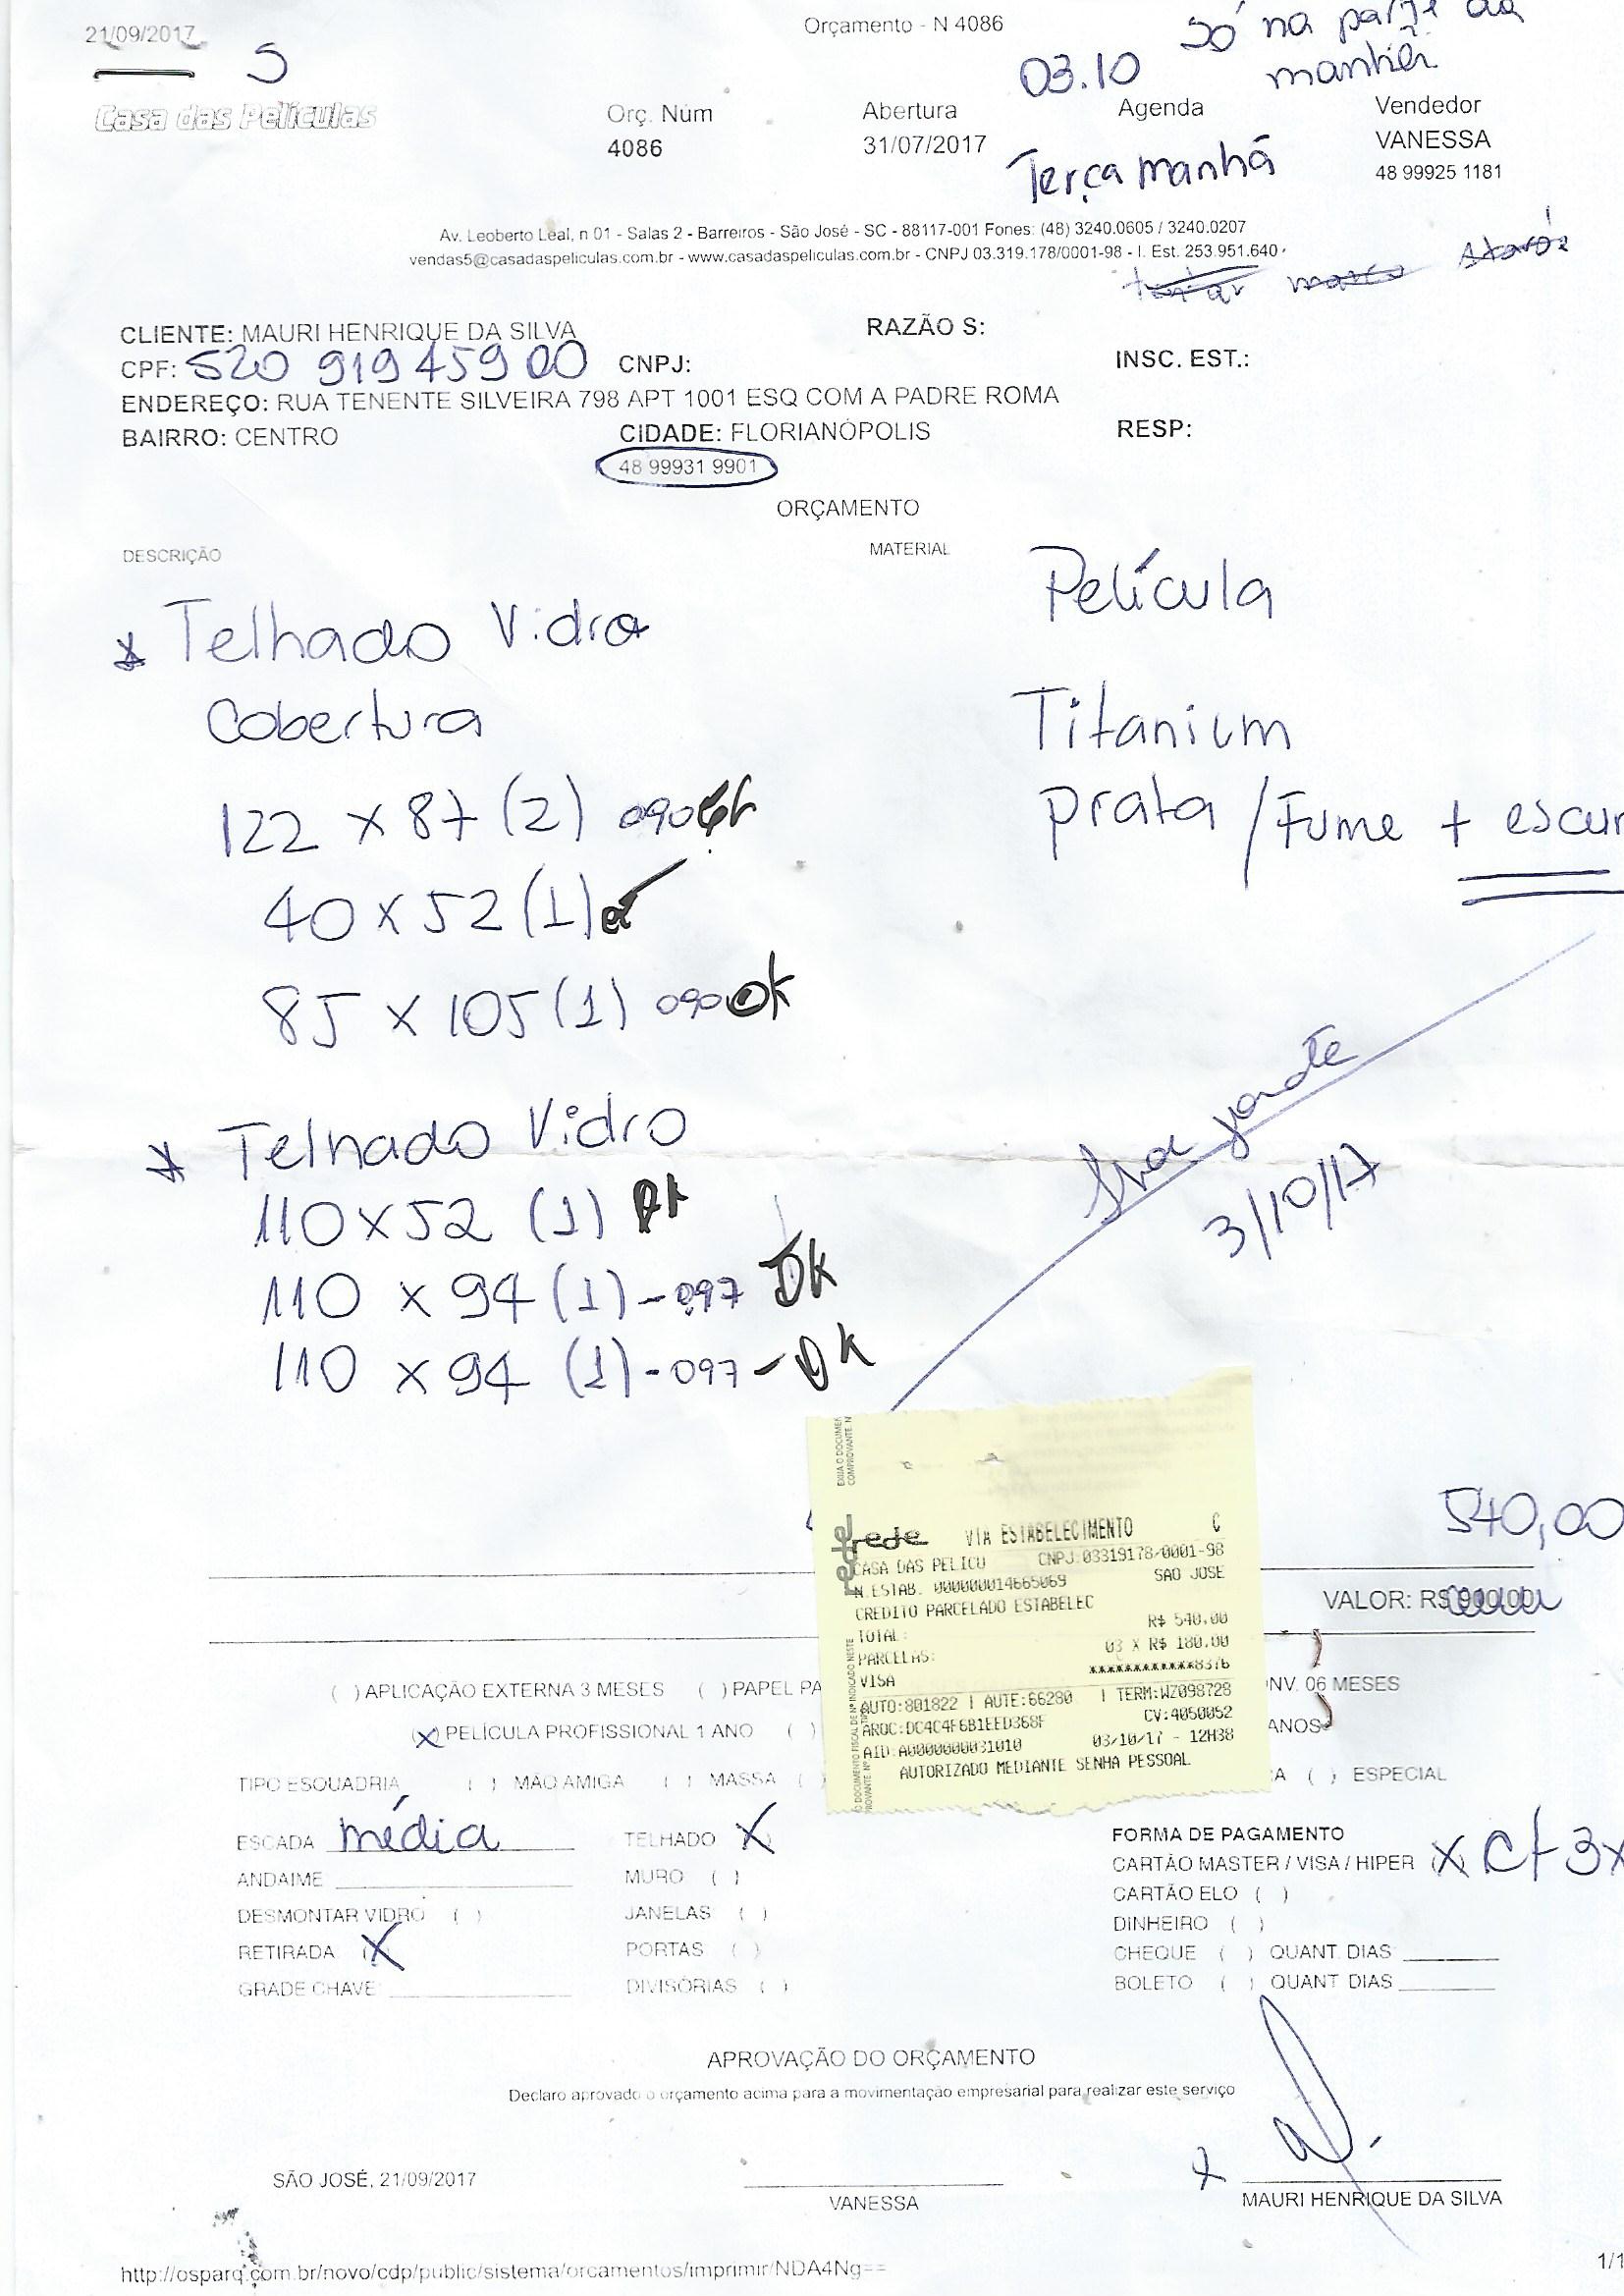 21/09/2017
Orçamento - N 4086
Só na parte da
manhã
5
03.10
Casa das Películas
Orç. Núm
Abertura
Agenda
Vendedor
4086
31/07/2017
Terça manhã
VANESSA
48 99925 1181
Av. Leoberto Leal, n 01 - Salas 2 - Barreiros - São José - SC - 88117-001 Fones: (48) 3240.0605 / 3240.0207
vendas5@casadaspeliculas.com.br - www.casadaspeliculas.com.br - CNPJ 03.319.178/0001-98 - I. Est. 253.951.640
CLIENTE: MAURI HENRIQUE DA SILVA
RAZÃO S:
CPF: 520 919 459 00
CNPJ:
INSC. EST.:
ENDEREÇO: RUA TENENTE SILVEIRA 798 APT 1001 ESQ COM A PADRE ROMA
BAIRRO: CENTRO
CIDADE: FLORIANÓPOLIS
RESP:
48 99931 9901
ORÇAMENTO
DESCRIÇÃO
MATERIAL
* Telhado Vidro
Película
Cobertura
Titanium
122 x 87 (2) 090
prata / Fume + escur
40 x 52 (1)
85 x 105 (1) 090 ok
* Telhado Vidro
3/10/17
110 x 52 (1) ok
110 x 94 (1) - 097 OK
110 x 94 (1) - 097 - OK
540,00
VALOR: R$
rede
rede VIA ESTABELECIMENTO C
CASA DAS PELICU CNPJ:03319178/0001-98
N.ESTAB. 000000014665069 SAO JOSE
CREDITO PARCELADO ESTABELEC
TOTAL: R$ 540,00
PARCELAS: 03 X R$ 180,00
VISA ************8376
AUTO:801822 | AUTE:66280 | TERM:WZ098728
CV:4050052
ARQC:DC4C4F6B1EED368F
AID:A0000000031010 03/10/17 - 12H38
AUTORIZADO MEDIANTE SENHA PESSOAL
( ) APLICAÇÃO EXTERNA 3 MESES ( ) PAPEL PA
NV. 06 MESES
(x) PELÍCULA PROFISSIONAL 1 ANO ( )
ANOS
TIPO ESQUADRIA ( ) MÃO AMIGA ( ) MASSA ( )
A ( ) ESPECIAL
ESCADA média
TELHADO X
FORMA DE PAGAMENTO
CARTÃO MASTER / VISA / HIPER (X) Ct 3x
ANDAIME
MURO ( )
CARTÃO ELO ( )
DESMONTAR VIDRO ( )
JANELAS ( )
DINHEIRO ( )
RETIRADA (X
PORTAS ( )
CHEQUE ( ) QUANT. DIAS
GRADE CHAVE
DIVISÓRIAS ( )
BOLETO ( ) QUANT DIAS
APROVAÇÃO DO ORÇAMENTO
Declaro aprovado o orçamento acima para a movimentação empresarial para realizar este serviço
SÃO JOSÉ, 21/09/2017
x
VANESSA
MAURI HENRIQUE DA SILVA
http://osparq.com.br/novo/cdp/public/sistema/orcamentos/imprimir/NDA4Ng==
1/1